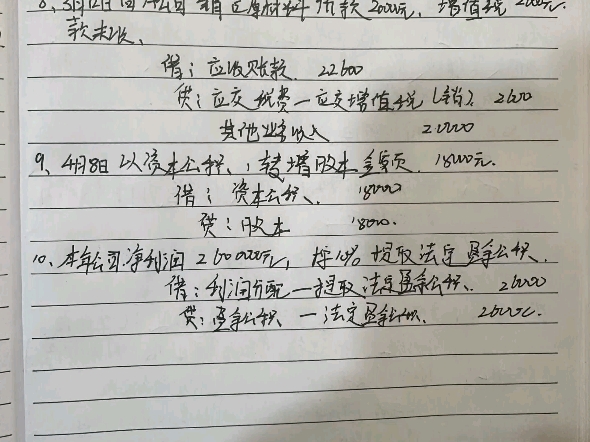 8、3月12日向 公司销售原材料价款20000元，增值税2600元.
款未收、
借：应收账款. 22600
贷：应交税费—应交增值税（销）. 2600
其他业务收入 20000
9、4月8日以资本公积、转增股本 18000元.
借：资本公积、 18000
贷：股本 18000.
10、本年公司净利润260000元，按10%提取法定盈余公积.
借：利润分配—提取法定盈余公积. 26000
贷：盈余公积、—法定盈余公积. 26000.